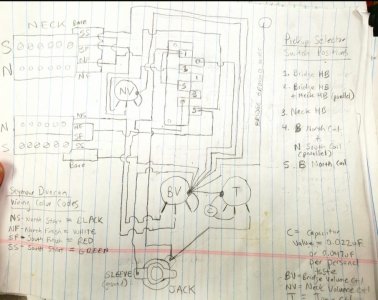 NECK
Bare
SS
SF
NF
NS
S
N
NV
NS
NF
SF
SS
N
S
Bare
BV
T
C
SLEEVE
(ground)
JACK
Seymour Duncan
Wiring Color Codes
NS = North Start = BLACK
NF = North Finish = WHITE
SF = South Finish = RED
SS = South Start = GREEN
Pickup Selector
Switch Positions
1. Bridge HB
2. Bridge HB
+ Neck HB (parallel)
3. Neck HB
4. B North Coil
+
N South Coil
(parallel)
5. B North Coil
C = Capacitor
Value = 0.022uF
or 0.047uF
per personal
taste
BV = Bridge Volume ctrl
NV = Neck Volume ctrl